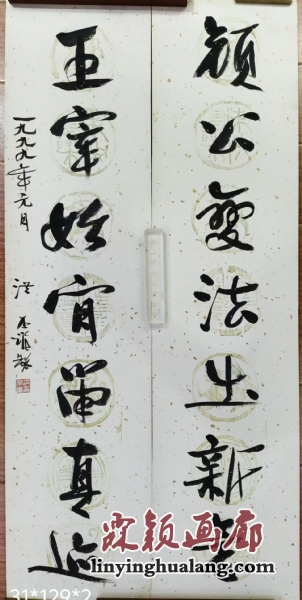 颜公變法出新意
王宰始肯留真迹
一九九九年元月
霖颖画廊
linyinghualang.com
31*129*2